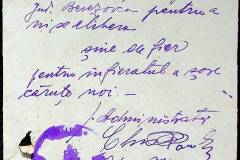 Jud. Berezovca pentru a
ni se elibera
șine de fier
pentru înfieratul a șase
căruțe noi —
Administrator